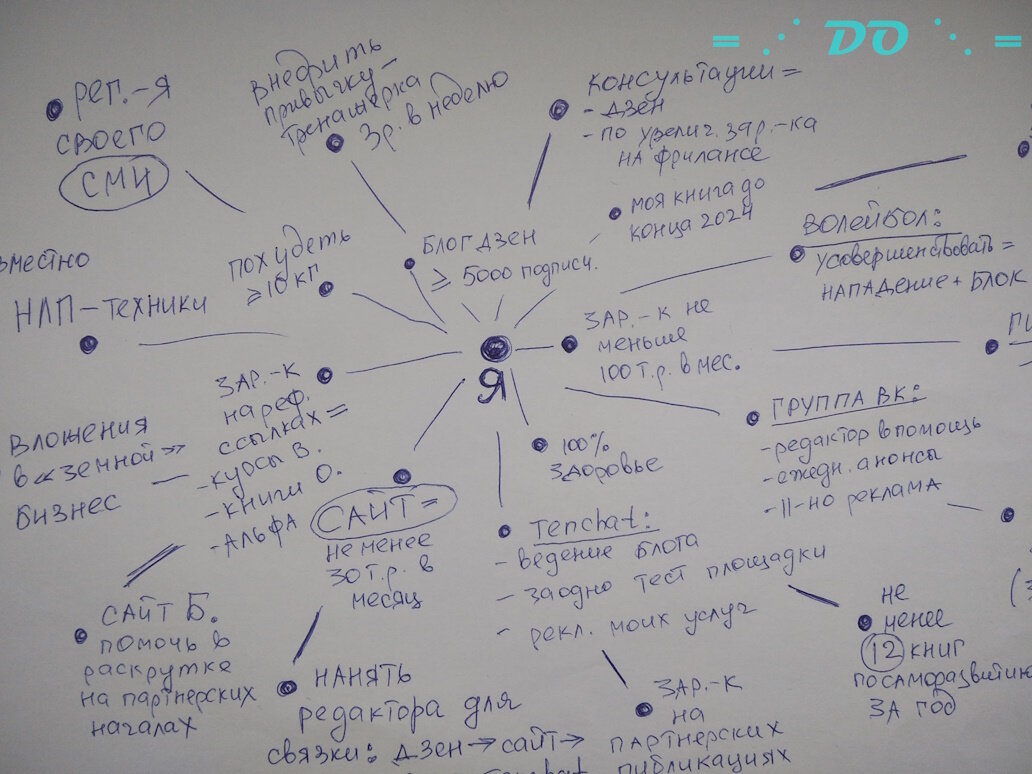 = ⋰ DO ⋱ =
рег.-я
своего
СМИ
внедрить
привычку –
тренажерка
3р. в неделю
консультации =
- Дзен
- по увелич. зар.-ка
на фрилансе
моя книга до
конца 2024
Волейбол:
усовершенствовать =
нападение + блок
вместно
НЛП-техники
похудеть
≥10 кг
Блог Дзен
≥ 5000 подписч.
зар.-к не
меньше
100 т.р. в мес.
Я
зар.-к
на реф.
ссылках =
- курсы В.
- книги О.
- Альфа
Вложения
в «земной»
бизнес
100%
здоровье
Группа ВК:
- редактор в помощь
- ежедн. анонсы
- II-но реклама
САЙТ =
не менее
30 т.р. в
месяц
Tenchat:
- ведение блога
- заодно тест площадки
- рекл. моих услуг
сайт Б.
помочь в
раскрутке
на партнерских
началах
нанять
редактора для
связки: Дзен → сайт →
зар.-к
на
партнерских
публикациях
не
менее
12 книг
по саморазвитию
за год